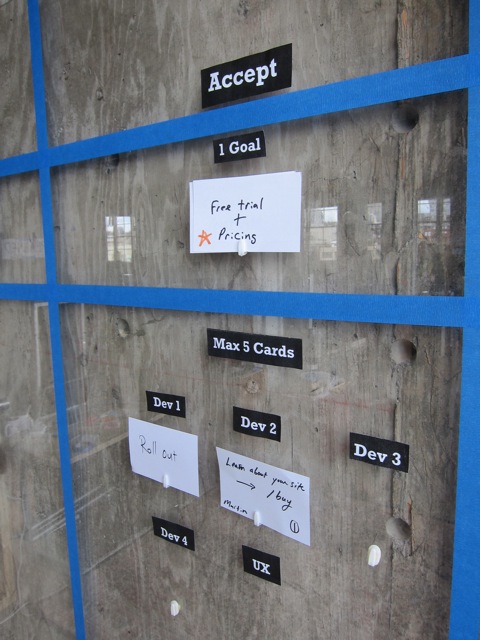 Accept
1 Goal
Free trial
+
Pricing
Max 5 Cards
Dev 1
Dev 2
Dev 3
Roll out
Learn about your site
→ / buy
Martin
①
Dev 4
UX